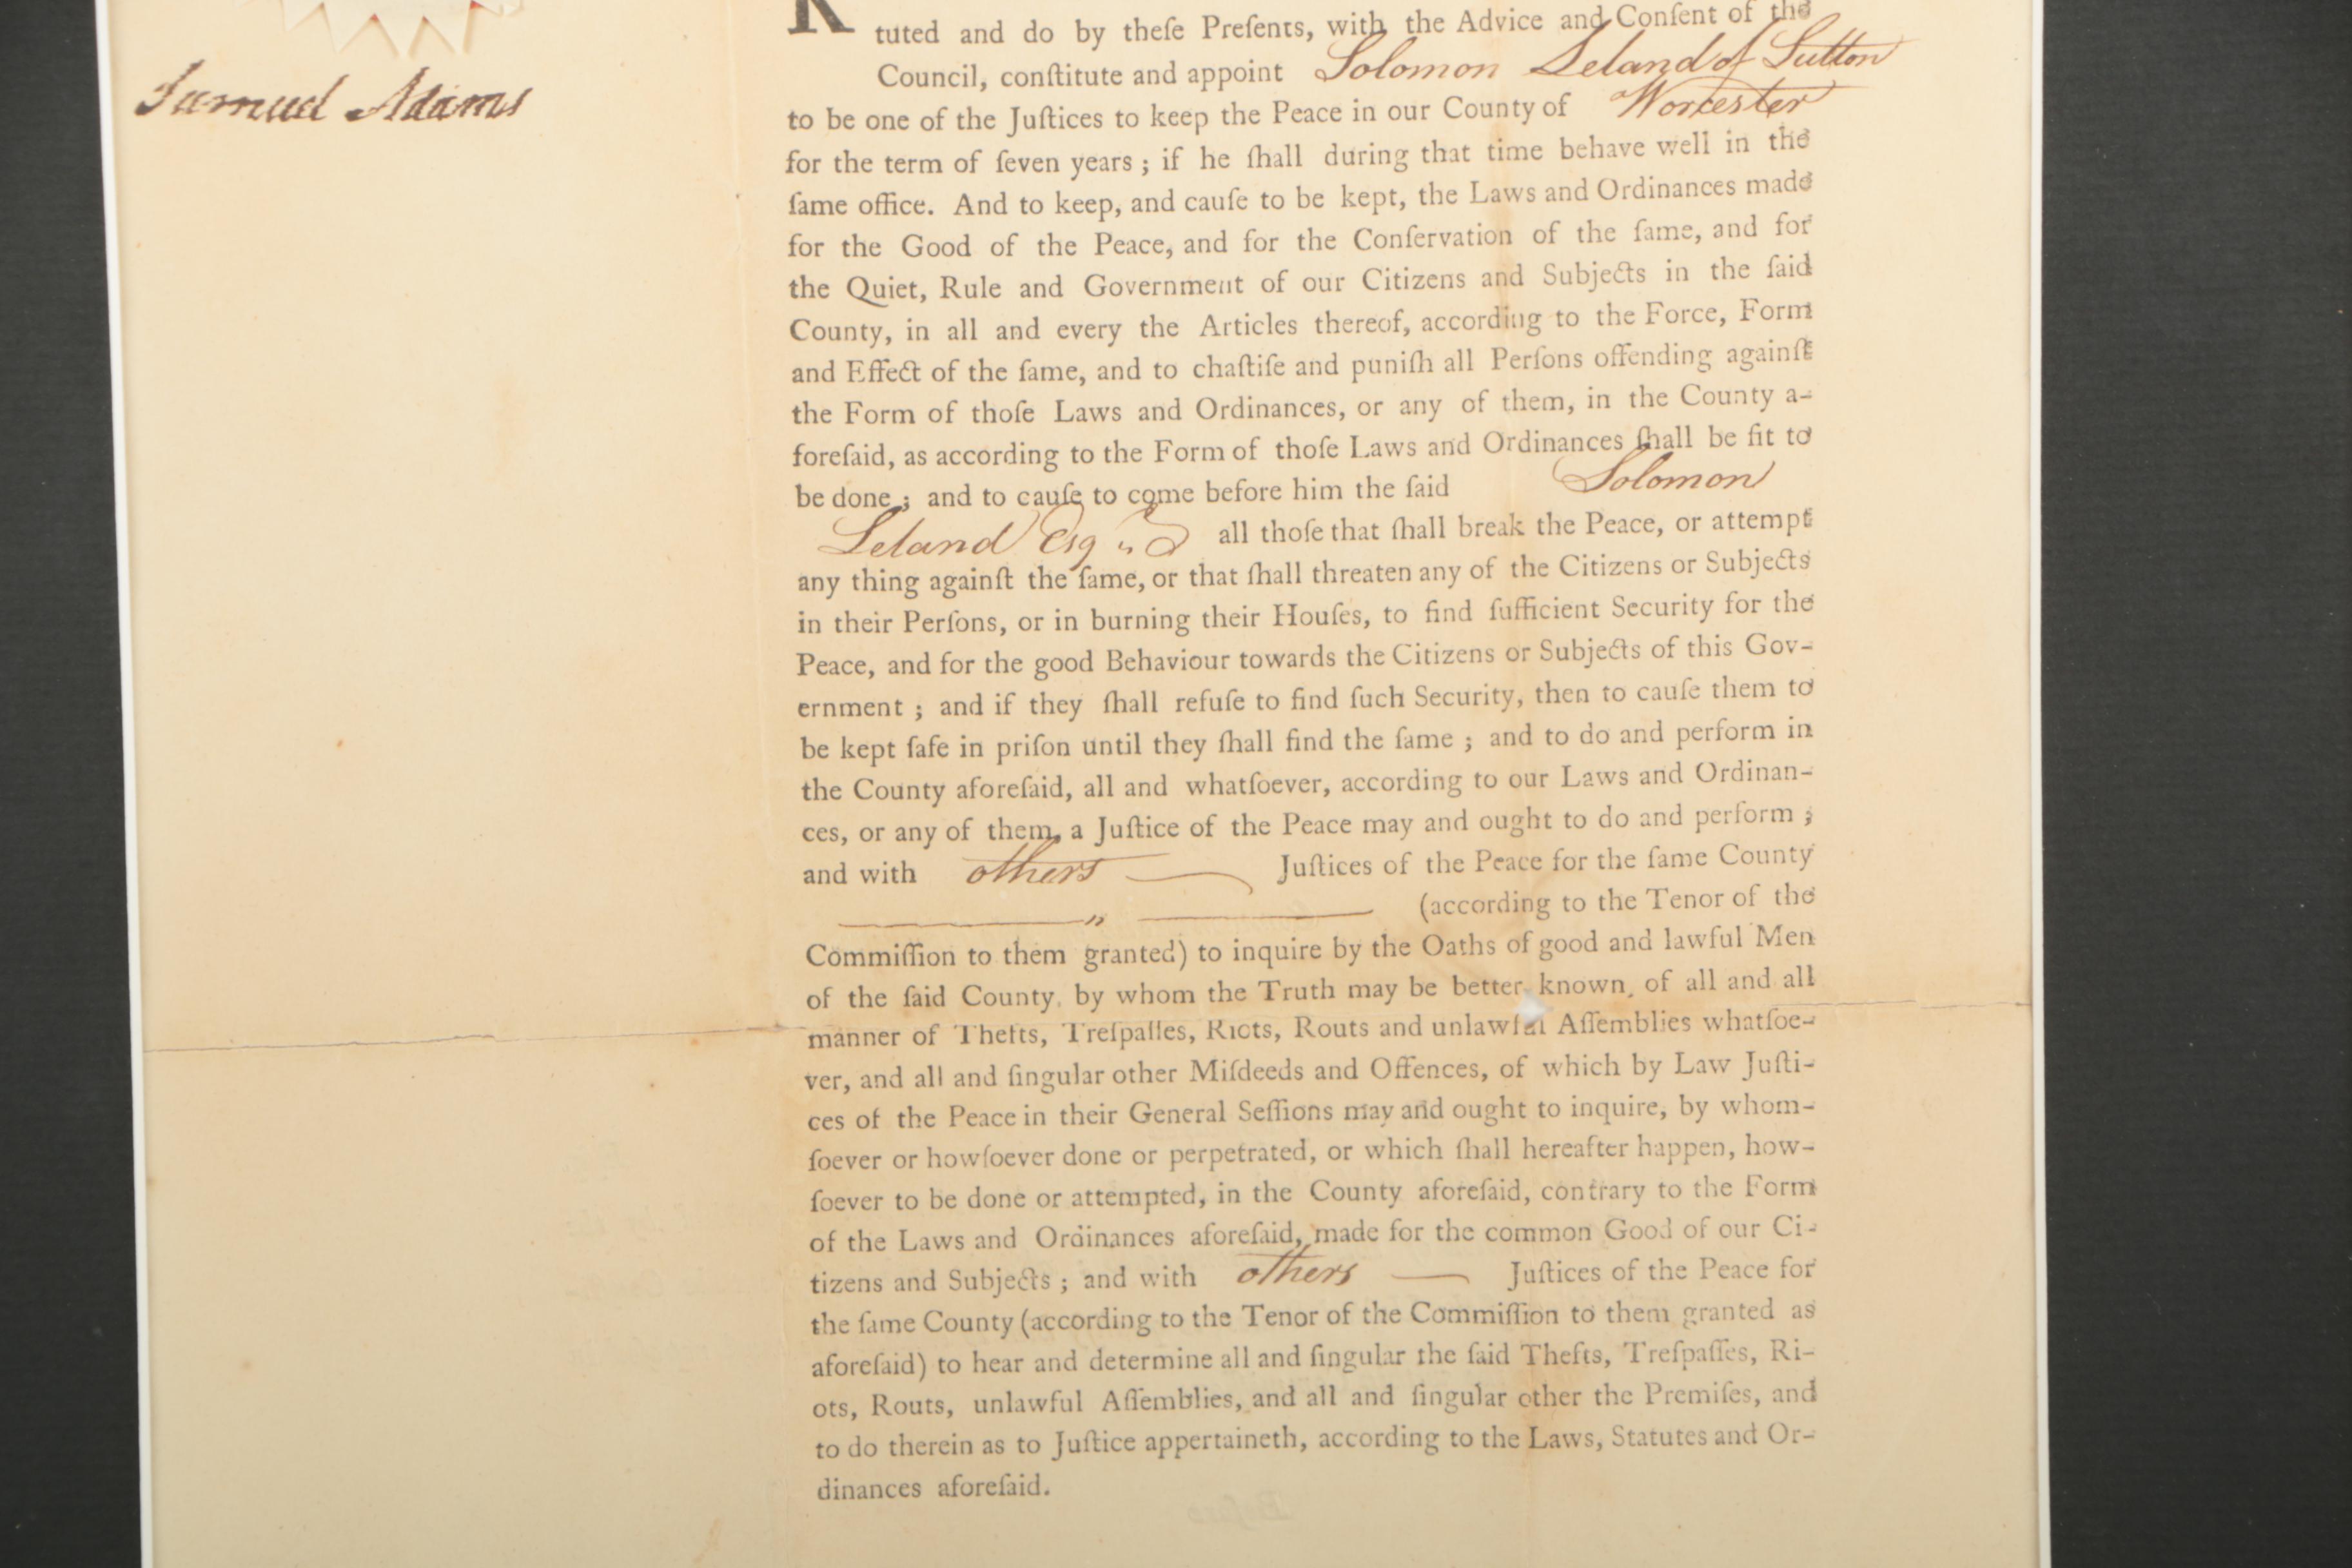 Samuel Adams
K
tuted and do by theſe Preſents, with the Advice and Conſent of the
Council, conſtitute and appoint Solomon Leland of Sutton
to be one of the Juſtices to keep the Peace in our County of Worcester
for the term of ſeven years ; if he ſhall during that time behave well in the
ſame office. And to keep, and cauſe to be kept, the Laws and Ordinances made
for the Good of the Peace, and for the Conſervation of the ſame, and for
the Quiet, Rule and Government of our Citizens and Subjects in the ſaid
County, in all and every the Articles thereof, according to the Force, Form
and Effect of the ſame, and to chaſtiſe and puniſh all Perſons offending againſt
the Form of thoſe Laws and Ordinances, or any of them, in the County a-
foreſaid, as according to the Form of thoſe Laws and Ordinances ſhall be fit to
be done ; and to cauſe to come before him the ſaid Solomon
Leland Esq all thoſe that ſhall break the Peace, or attempt
any thing againſt the ſame, or that ſhall threaten any of the Citizens or Subjects
in their Perſons, or in burning their Houſes, to find ſufficient Security for the
Peace, and for the good Behaviour towards the Citizens or Subjects of this Gov-
ernment ; and if they ſhall refuſe to find ſuch Security, then to cauſe them to
be kept ſafe in priſon until they ſhall find the ſame ; and to do and perform in
the County aforeſaid, all and whatſoever, according to our Laws and Ordinan-
ces, or any of them, a Juſtice of the Peace may and ought to do and perform ;
and with others — Juſtices of the Peace for the ſame County
— " — (according to the Tenor of the
Commiſſion to them granted) to inquire by the Oaths of good and lawful Men
of the ſaid County, by whom the Truth may be better known, of all and all
manner of Thefts, Treſpaſſes, Riots, Routs and unlawful Aſſemblies whatſoe-
ver, and all and ſingular other Miſdeeds and Offences, of which by Law Juſti-
ces of the Peace in their General Seſſions may and ought to inquire, by whom-
ſoever or howſoever done or perpetrated, or which ſhall hereafter happen, how-
ſoever to be done or attempted, in the County aforeſaid, contrary to the Form
of the Laws and Ordinances aforeſaid, made for the common Good of our Ci-
tizens and Subjects ; and with others — Juſtices of the Peace for
the ſame County (according to the Tenor of the Commiſſion to them granted as
aforeſaid) to hear and determine all and ſingular the ſaid Thefts, Treſpaſſes, Ri-
ots, Routs, unlawful Aſſemblies, and all and ſingular other the Premiſes, and
to do therein as to Juſtice appertaineth, according to the Laws, Statutes and Or-
dinances aforeſaid.